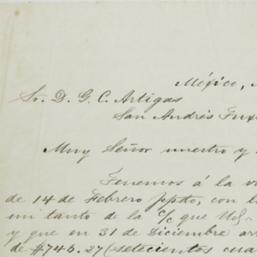 México,
Sr. D. G. C. Artigas
San Andrés Tuxt
Muy Señor nuestro y
Tenemos á la v
de 14 de Febrero ppdo, con l
un tanto de la c/c que Ud.
y que en 31 de Diciembre
de $746.27 (setecientos cua